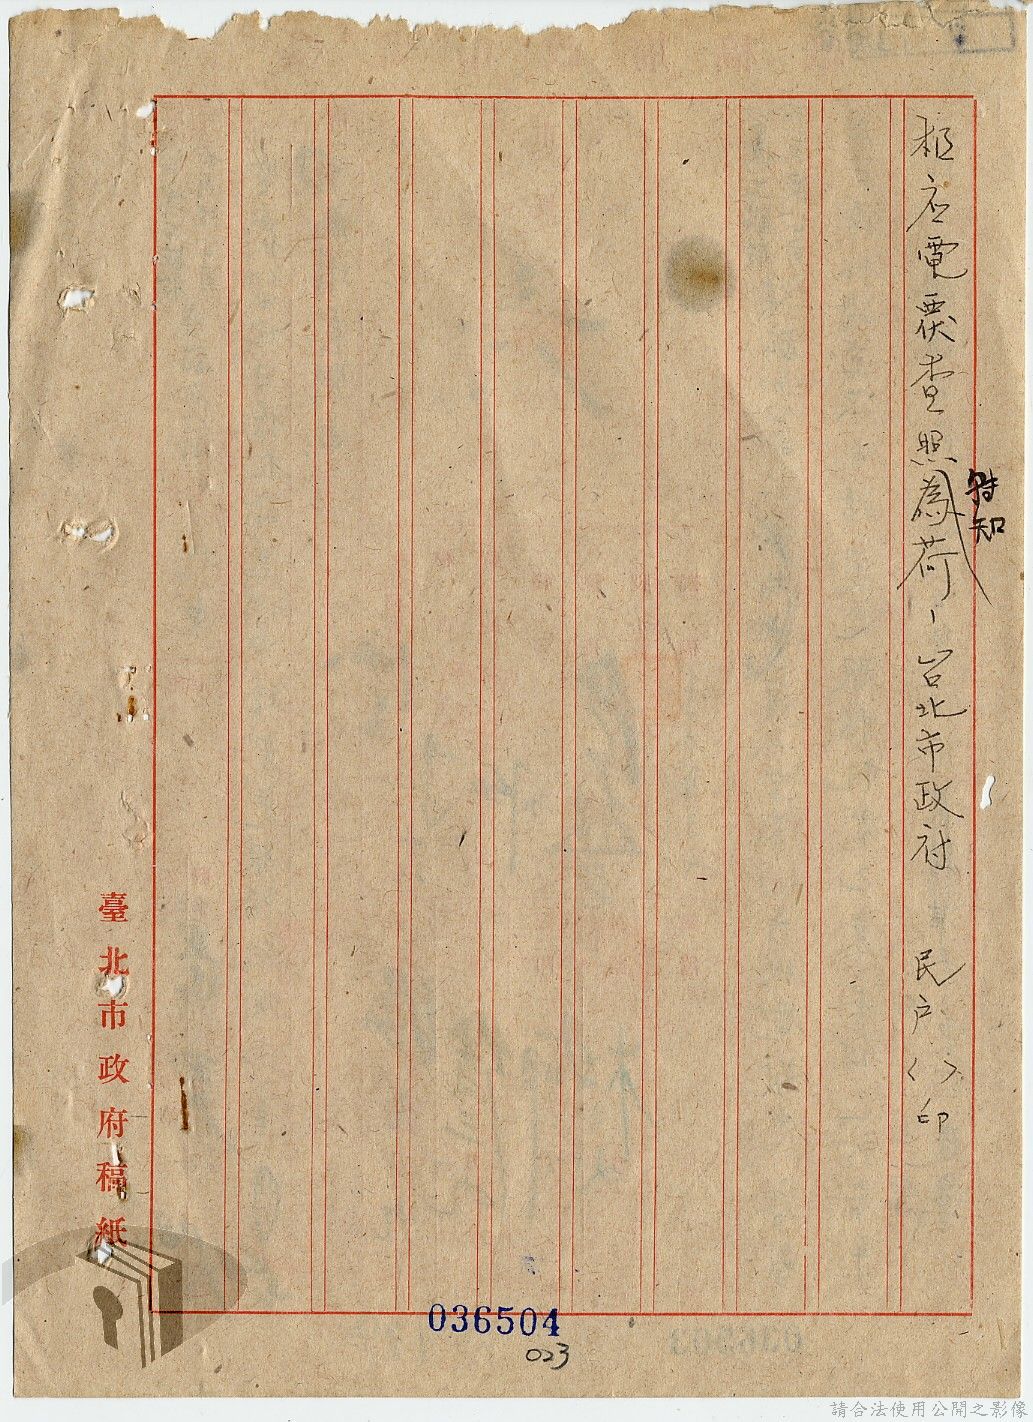 相应電覆查照為荷、台北市政府　民戶〈〉印
特知
臺北市政府稿紙
036504
023
請合法使用公開之影像